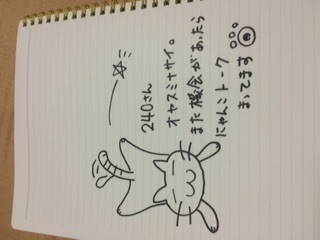 240さん
オヤスミナサイ。
また機会があったら
にゃんこトーク
まってます